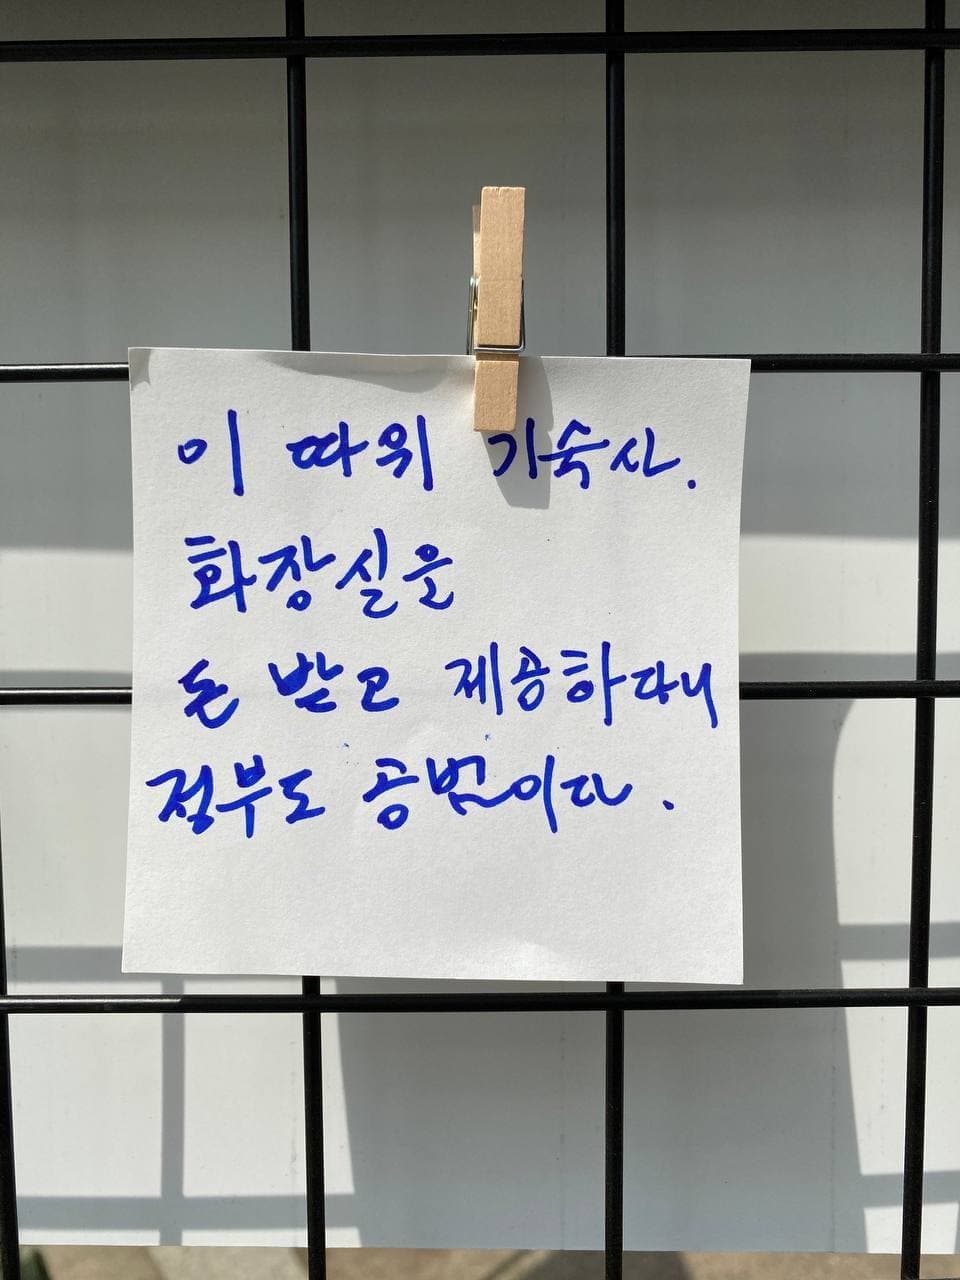 이 따위 기숙사.
화장실을
돈 받고 제공하다니
정부도 공범이다.